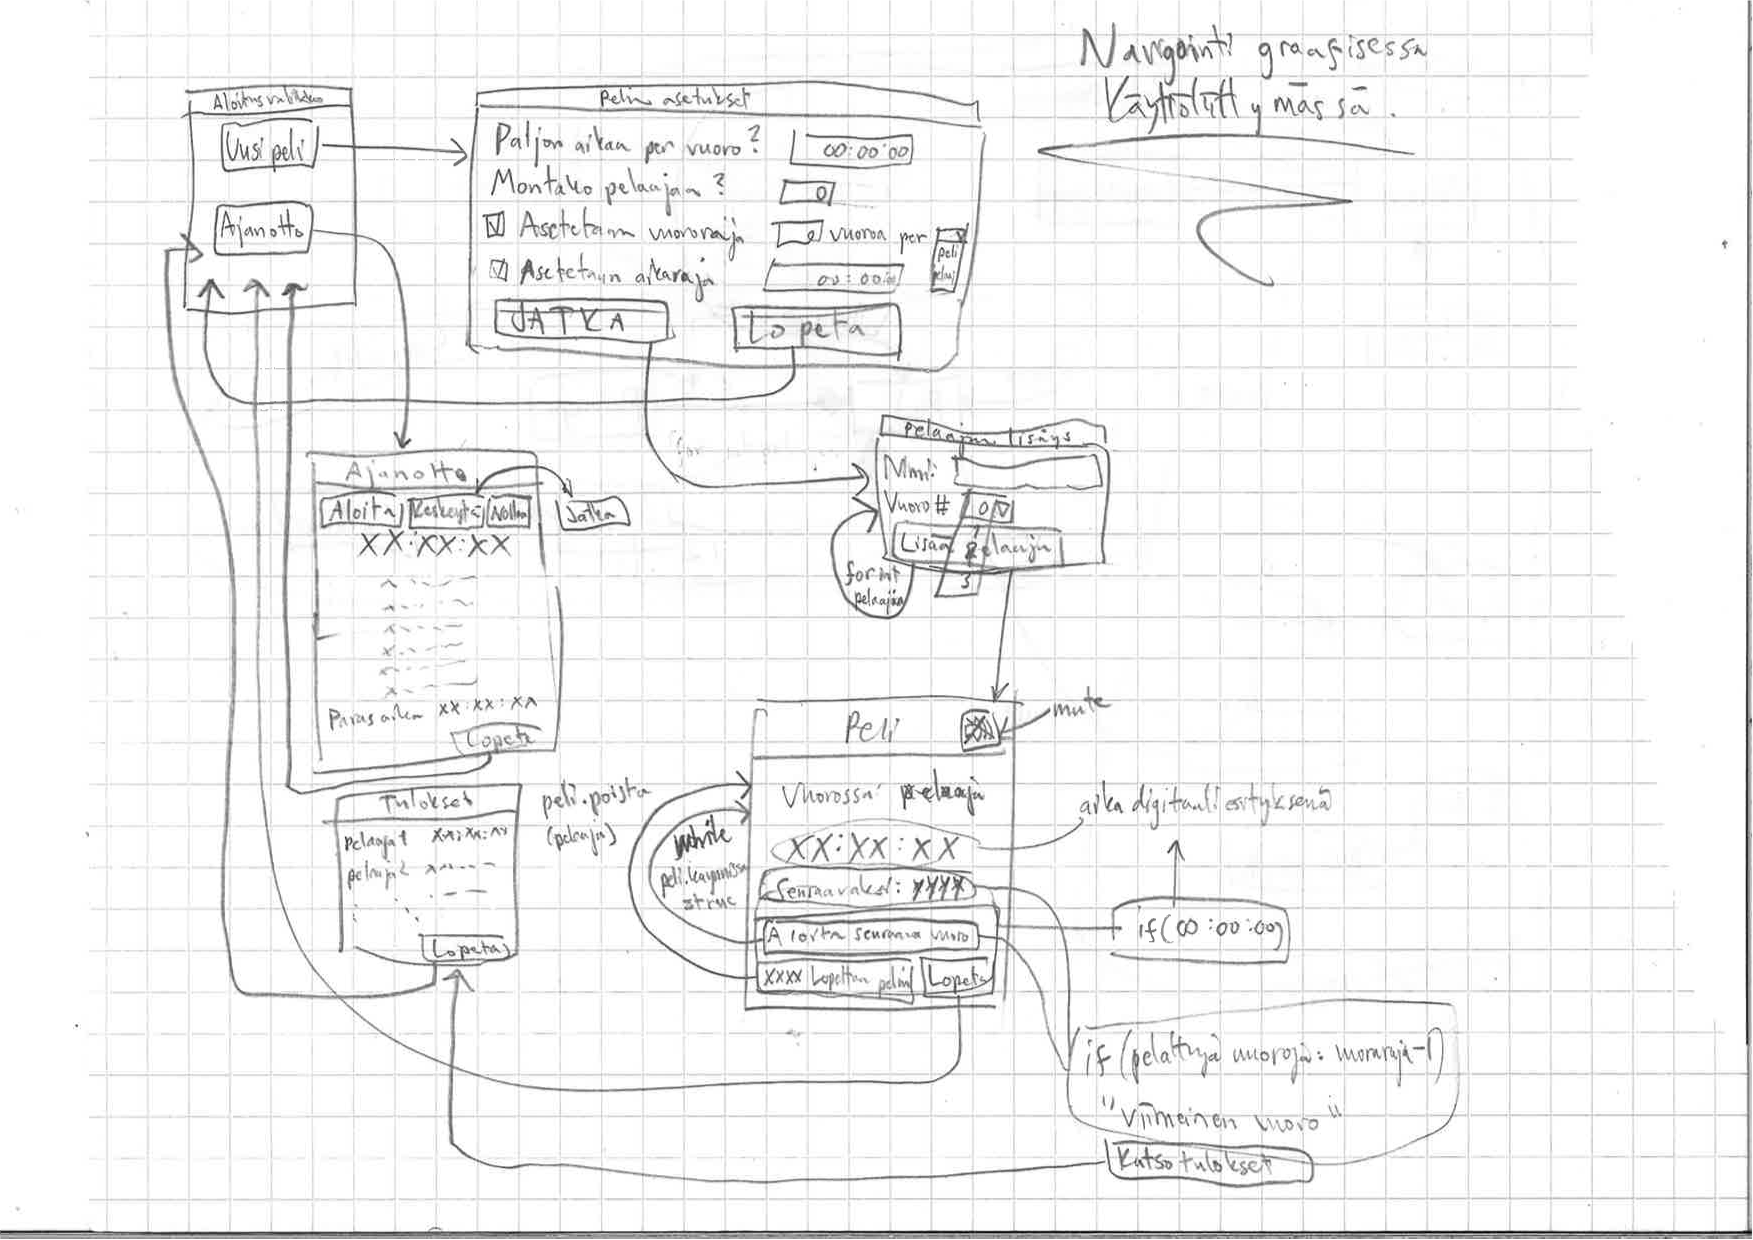 Navigointi graafisessa
Käyttöliittymässä.
Aloitusvalikko
Uusi peli
Ajanotto
Pelin asetukset
Paljon aikaa per vuoro? 00:00:00
Montako pelaajaa? 0
Asetetaan vuororaja 0 vuoroa per
peli
Asetetaan aikaraja 00:00:00
JATKA
Lopeta
Pelaajan lisäys
Nimi:
Vuoro # 0
Lisää pelaaja
3
for int
pelaajaa
Ajanotto
Aloita Keskeytä Nollaa Jatka
XX:XX:XX
Paras aika XX:XX:XX
Lopeta
Tulokset
Pelaaja1 XX:XX:XX
pelaaja2
Lopeta
peli.poista
(pelaaja)
while
peli.kaynnissa
Peli
mute
Vuorossa: pelaaja
XX:XX:XX
aika digitaaliesityksenä
Seuraavaksi: XXXX
Aloita seuraava vuoro
XXXX Lopettaa pelin
Lopeta
if(00:00:00)
if (pelattuja vuoroja = vuororaja-1)
"Viimeinen vuoro"
Katso tulokset